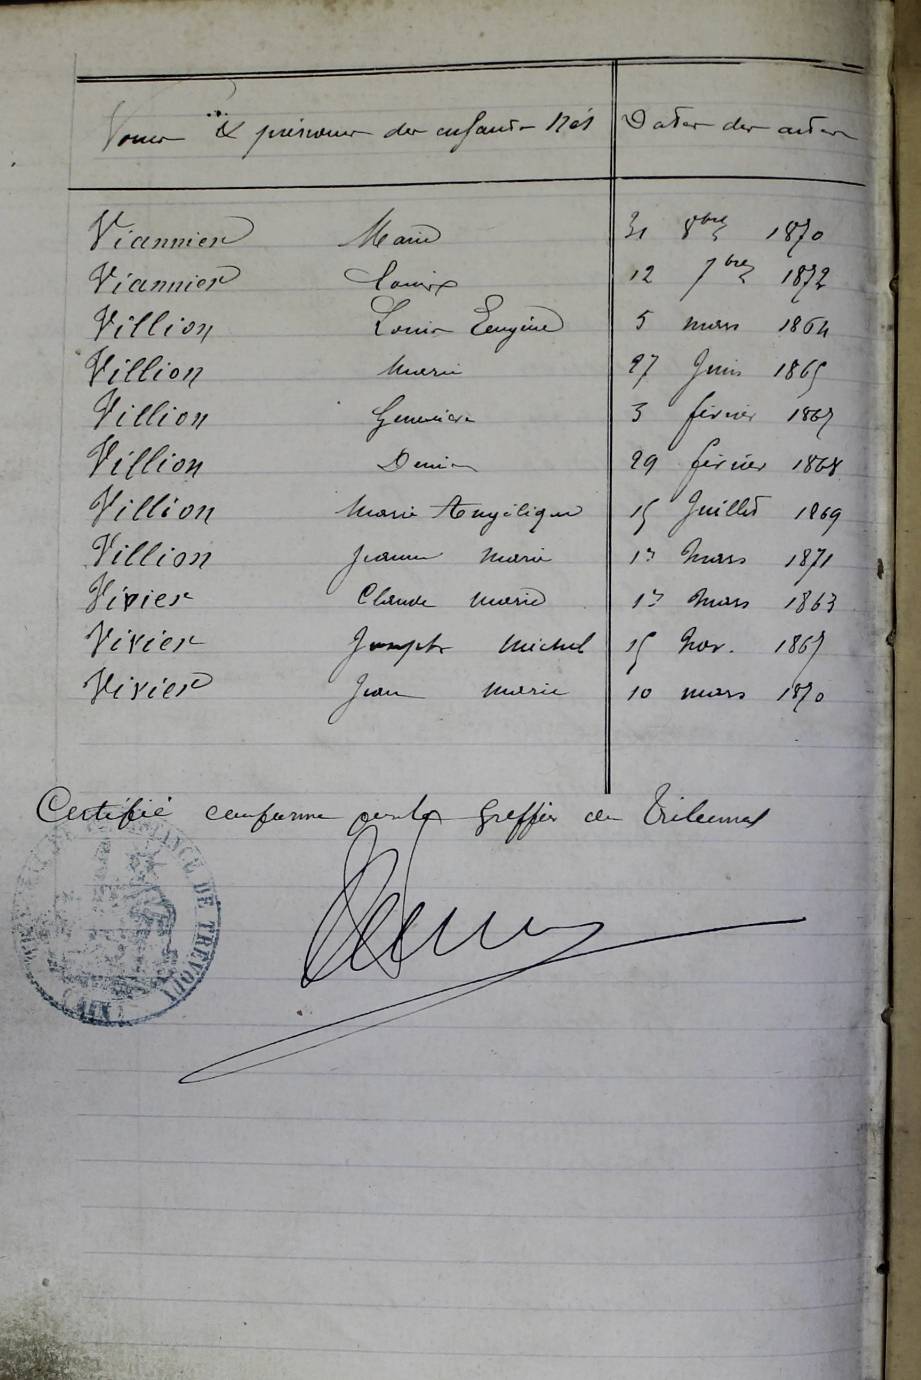 Noms & prénoms des enfants Nés Dates des actes
Viannier Marie 31 8bre 1870
Viannier Louise 12 7bre 1872
Villion Louis Eugène 5 mars 1864
Villion Marie 27 Juin 1865
Villion Geneviève 3 février 1867
Villion Denis 29 février 1868
Villion Marie Angélique 15 Juillet 1869
Villion Jeanne Marie 17 Mars 1871
Vivier Claude Marie 17 Mars 1863
Vivier Joseph Michel 15 Nov. 1867
Vivier Jean Marie 10 mars 1870
Certifié conforme par le Greffier du Tribunal
INSTANCE DE TREVOUX (AIN)